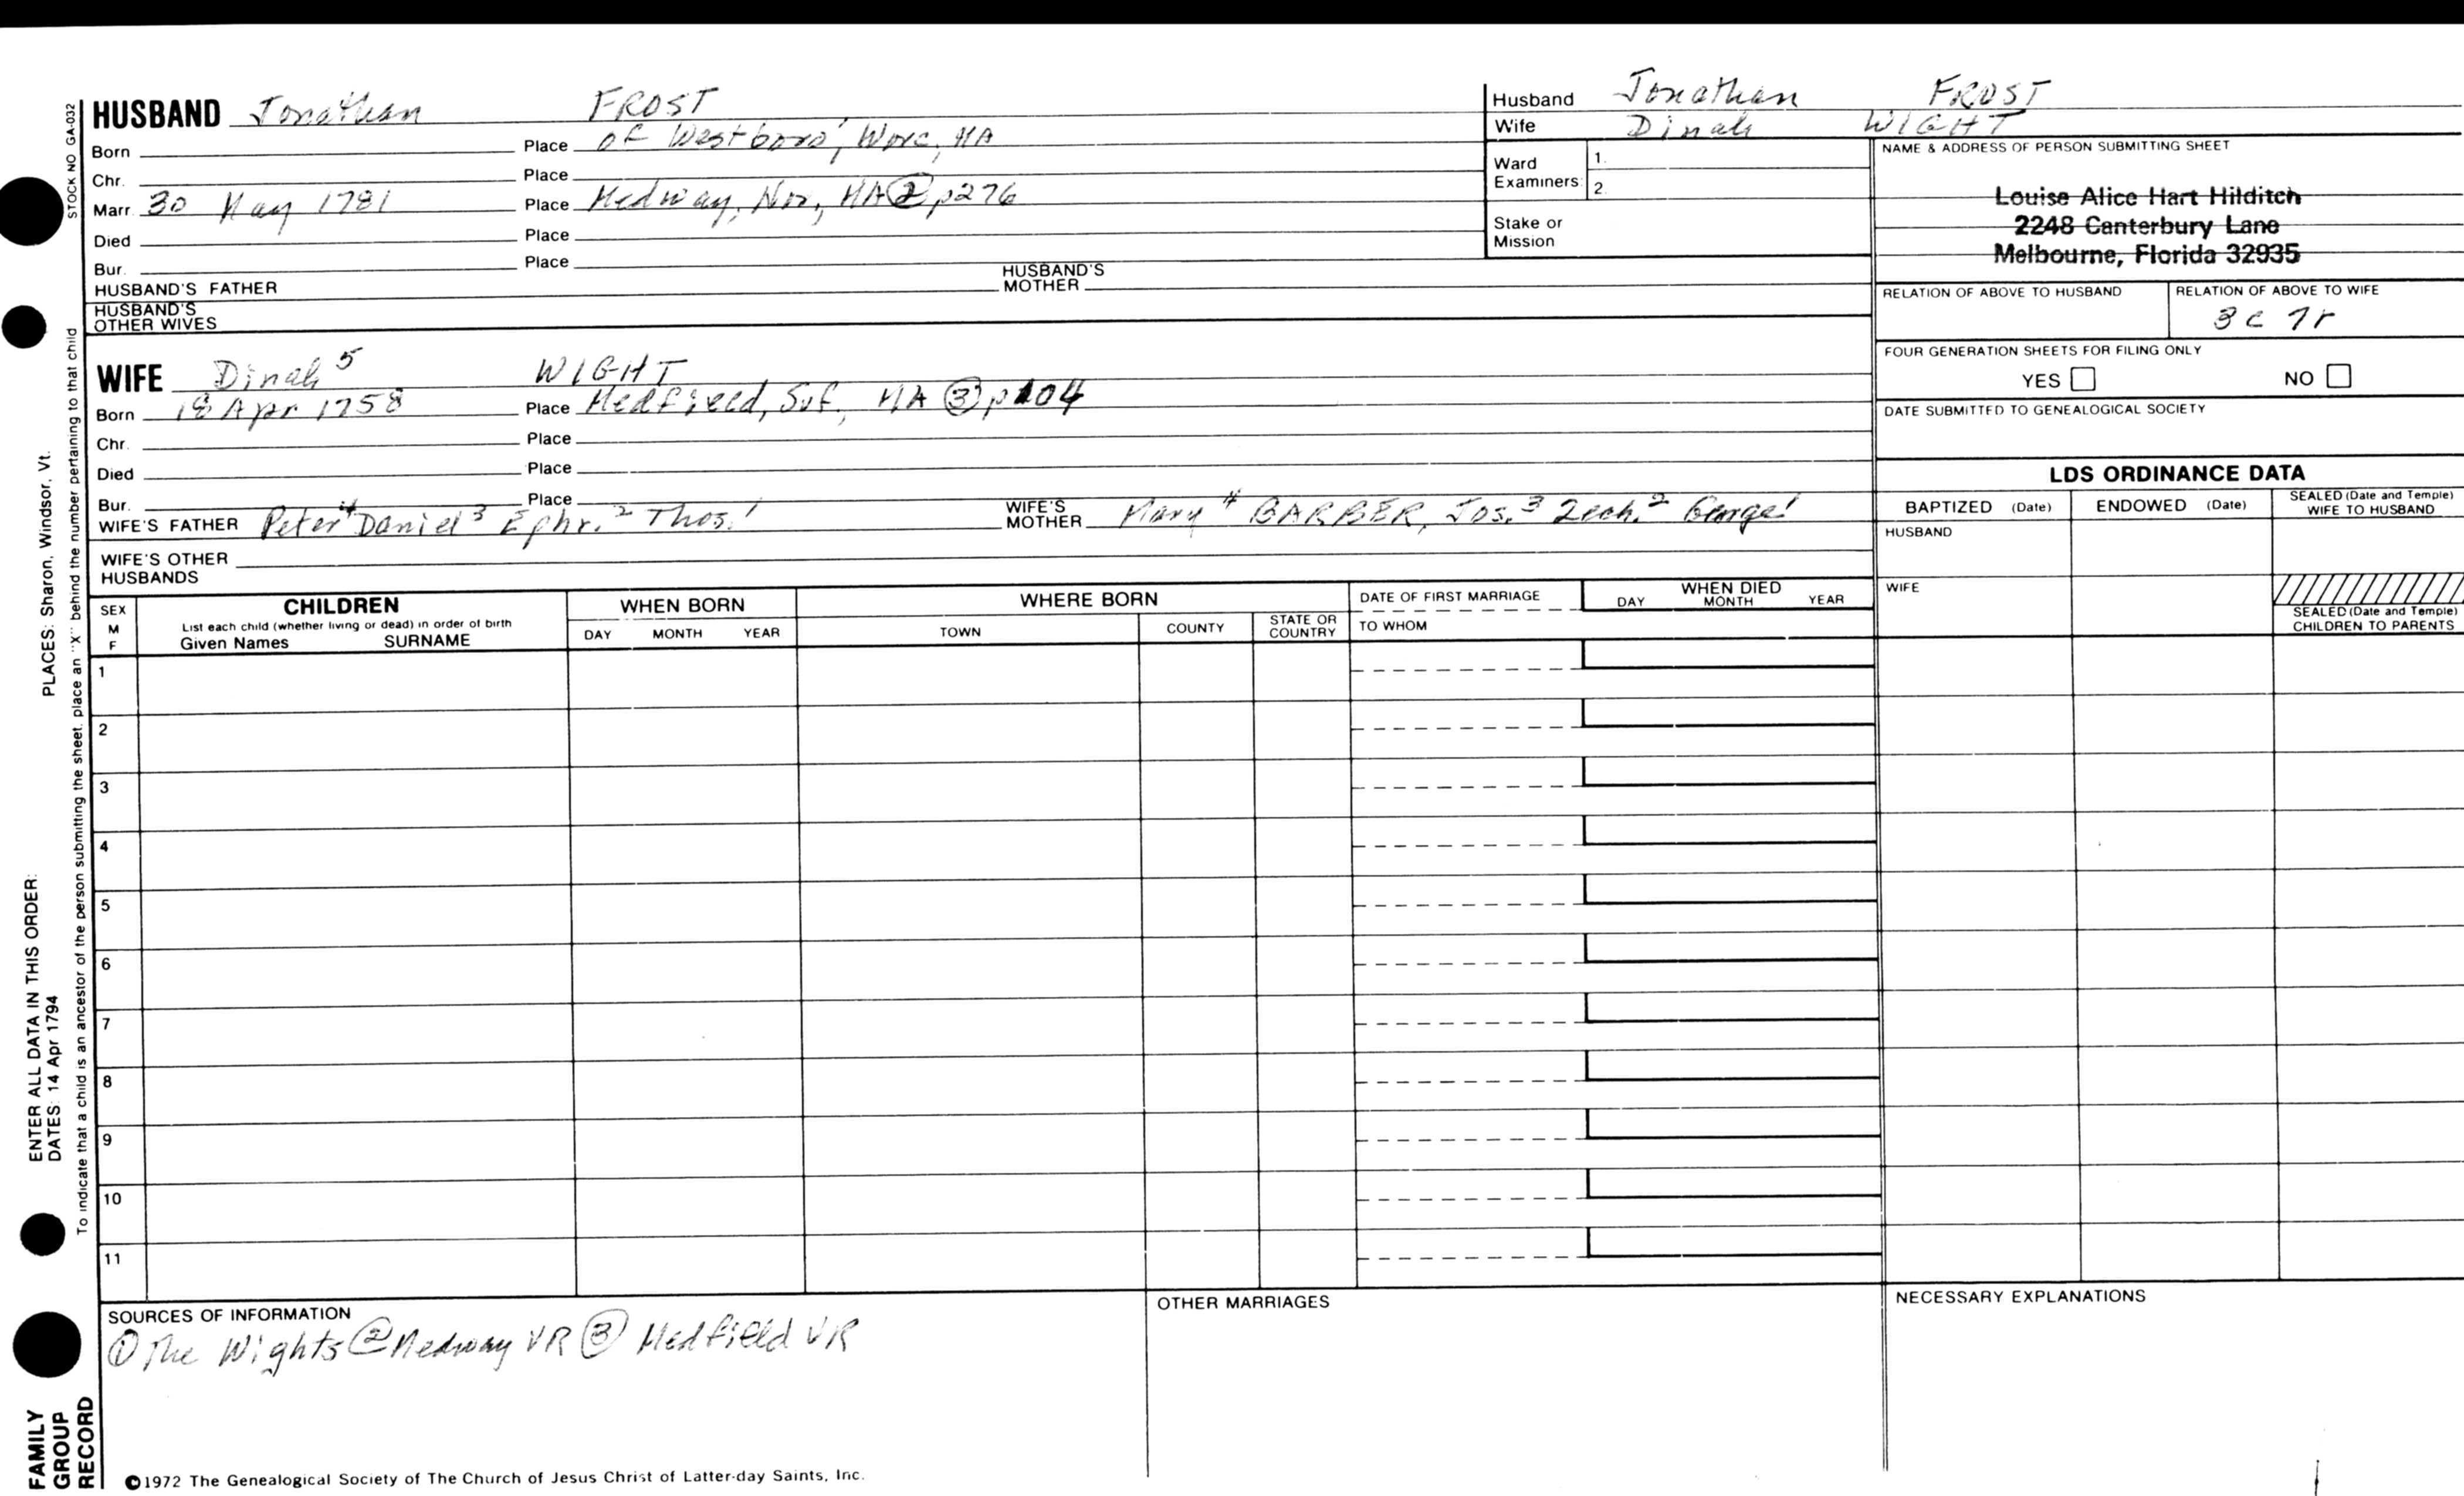 HUSBAND Jonathan FROST
Born Place of Westboro', Worc, MA
Chr. Place
Marr. 30 May 1781 Place Medway, Nor, MA ② p276
Died Place
Bur. Place
HUSBAND'S FATHER HUSBAND'S MOTHER
HUSBAND'S OTHER WIVES
Husband Jonathan FROST
Wife Dinah WIGHT
Ward Examiners: 1.
2.
Stake or Mission
NAME & ADDRESS OF PERSON SUBMITTING SHEET
Louise Alice Hart Hilditch
2248 Canterbury Lane
Melbourne, Florida 32935
RELATION OF ABOVE TO HUSBAND RELATION OF ABOVE TO WIFE
3c 7r
FOUR GENERATION SHEETS FOR FILING ONLY
YES NO
DATE SUBMITTED TO GENEALOGICAL SOCIETY
WIFE Dinah 5 WIGHT
Born 18 Apr 1758 Place Medfield, Suf., MA ③ p104
Chr. Place
Died Place
Bur. Place
WIFE'S FATHER Peter 4 Daniel 3 Ephr. 2 Thos. 1 WIFE'S MOTHER Mary 4 BARBER, Jos. 3 Zech. 2 George 1
WIFE'S OTHER HUSBANDS
LDS ORDINANCE DATA
BAPTIZED (Date) ENDOWED (Date) SEALED (Date and Temple) WIFE TO HUSBAND
HUSBAND
WIFE
SEALED (Date and Temple) CHILDREN TO PARENTS
SEX M F
CHILDREN
List each child (whether living or dead) in order of birth
Given Names SURNAME
WHEN BORN
DAY MONTH YEAR
WHERE BORN
TOWN COUNTY STATE OR COUNTRY
DATE OF FIRST MARRIAGE
TO WHOM
WHEN DIED
DAY MONTH YEAR
1
2
3
4
5
6
7
8
9
10
11
SOURCES OF INFORMATION
① The Wights ② Medway VR ③ Medfield VR
OTHER MARRIAGES
NECESSARY EXPLANATIONS
©1972 The Genealogical Society of The Church of Jesus Christ of Latter-day Saints, Inc.
STOCK NO GA-032
To indicate that a child is an ancestor of the person submitting the sheet, place an "X" behind the number pertaining to that child
PLACES: Sharon, Windsor, Vt.
ENTER ALL DATA IN THIS ORDER:
DATES: 14 Apr 1794
FAMILY
GROUP
RECORD